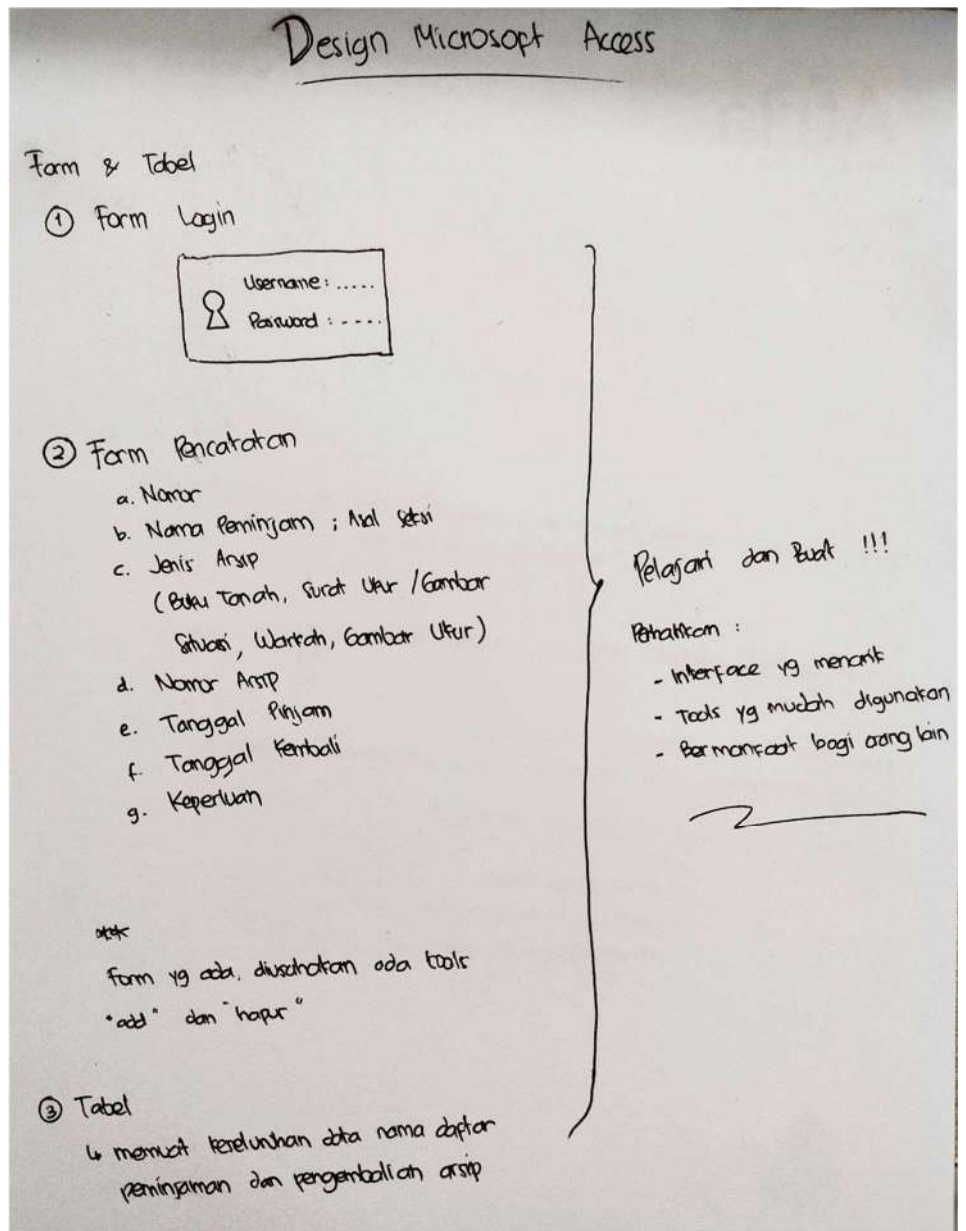 Design Microsopt Access
Form & Tabel
① Form Login
Username : .....
Password : ....
② Form Pencatatan
a. Nomor
b. Nama Peminjam ; Asal Seksi
c. Jenis Arsip
(Buku Tanah, Surat Ukur / Gambar
Situasi, Warkah, Gambar Ukur)
d. Nomor Arsip
e. Tanggal Pinjam
f. Tanggal Kembali
g. Keperluan
form yg ada, diusahakan ada tools
"add" dan "hapus"
③ Tabel
↳ memuat keseluruhan data nama daftar
peminjaman dan pengembalian arsip
Pelajari dan Buat !!!
Perhatikan :
- Interface yg menarik
- Tools yg mudah digunakan
- Bermanfaat bagi orang lain